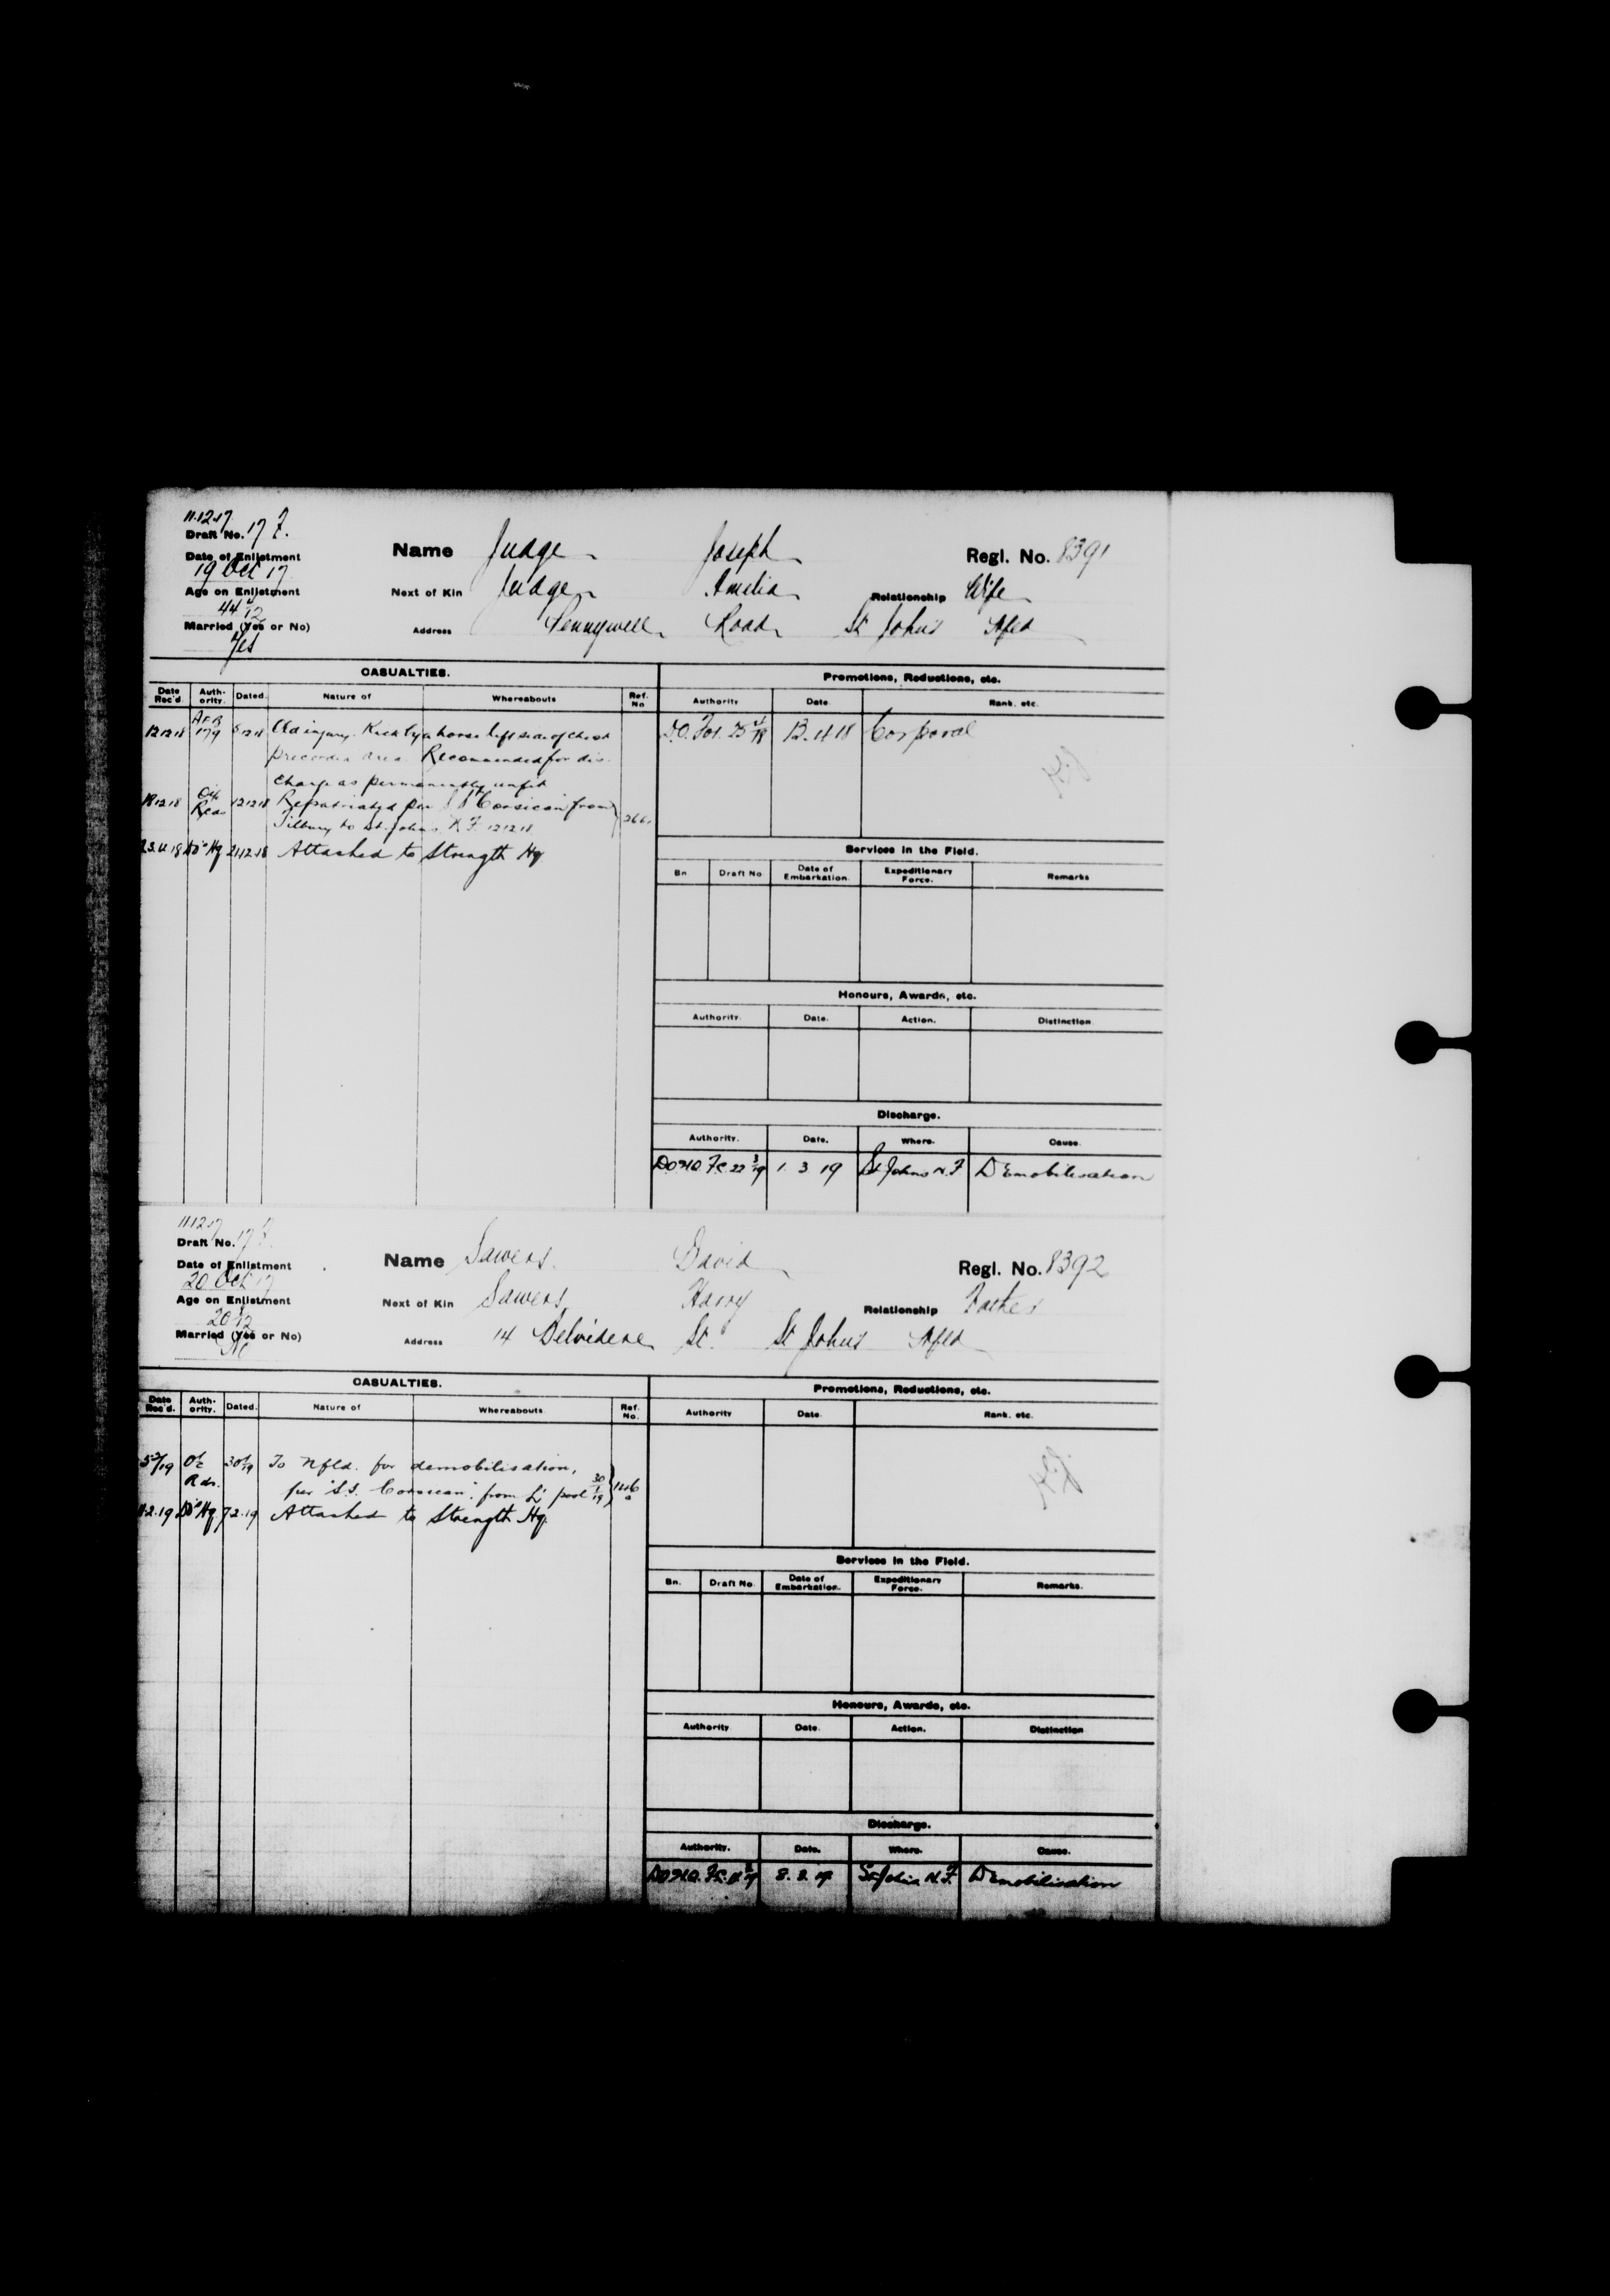 11.12.17
Draft No. 17 F.
Name Judge Joseph Regl. No. 8391
Date of Enlistment
19 Oct 17
Age on Enlistment
44 /12
Next of Kin Judge Amelia Relationship Wife
Married (Yes or No)
Yes
Address Pennywell Road St John's Nfld
CASUALTIES. Promotions, Reductions, etc.
Date Rec'd. Auth-ority. Dated. Nature of Whereabouts Ref. No Authority Date. Rank. etc.
12 12 18 A.F.B. 179 5 12 18 Old injury. Kick by a horse left side of chest
D.O. 13.4.18 Corporal
precordia area. Recommended for dis-
charge as permanently unfit
18 12 18 O i/c Rcds 12 12 18 Repatriated per S.S. Corsican from
Tilbury to St. Johns N.F. 12 12 18.
DO Hq 21.12.18 Attached to Strength Hq
Services in the Field.
Bn. Draft No Date of Embarkation. Expeditionary Force. Remarks
Honours, Awards, etc.
Authority. Date. Action. Distinction
Discharge.
Authority. Date. Where. Cause.
1. 3. 19 St Johns N.F Demobilisation
11.12.17
Draft No. 17 F.
Name Sawers David Regl. No. 8392
Date of Enlistment
20 Oct 17
Age on Enlistment
20 /12
Next of Kin Sawers Harry Relationship Father
Married (Yes or No)
No
Address 14 Belvidere St. St John's Nfld
CASUALTIES. Promotions, Reductions, etc.
Date Rec'd. Auth-ority. Dated. Nature of Whereabouts Ref. No. Authority Date. Rank. etc.
O i/c 30/1/19 To Nfld. for demobilisation,
Rds. per S.S. Corsican, from L'pool 30/1/19
11.2.19 DO Hq 7.2.19 Attached to Strength Hq.
Services in the Field.
Bn. Draft No Date of Embarkation. Expeditionary Force. Remarks.
Honours, Awards, etc.
Authority Date. Action. Distinction
Discharge.
Authority. Date. Where. Cause.
St Johns N.F. Demobilisation